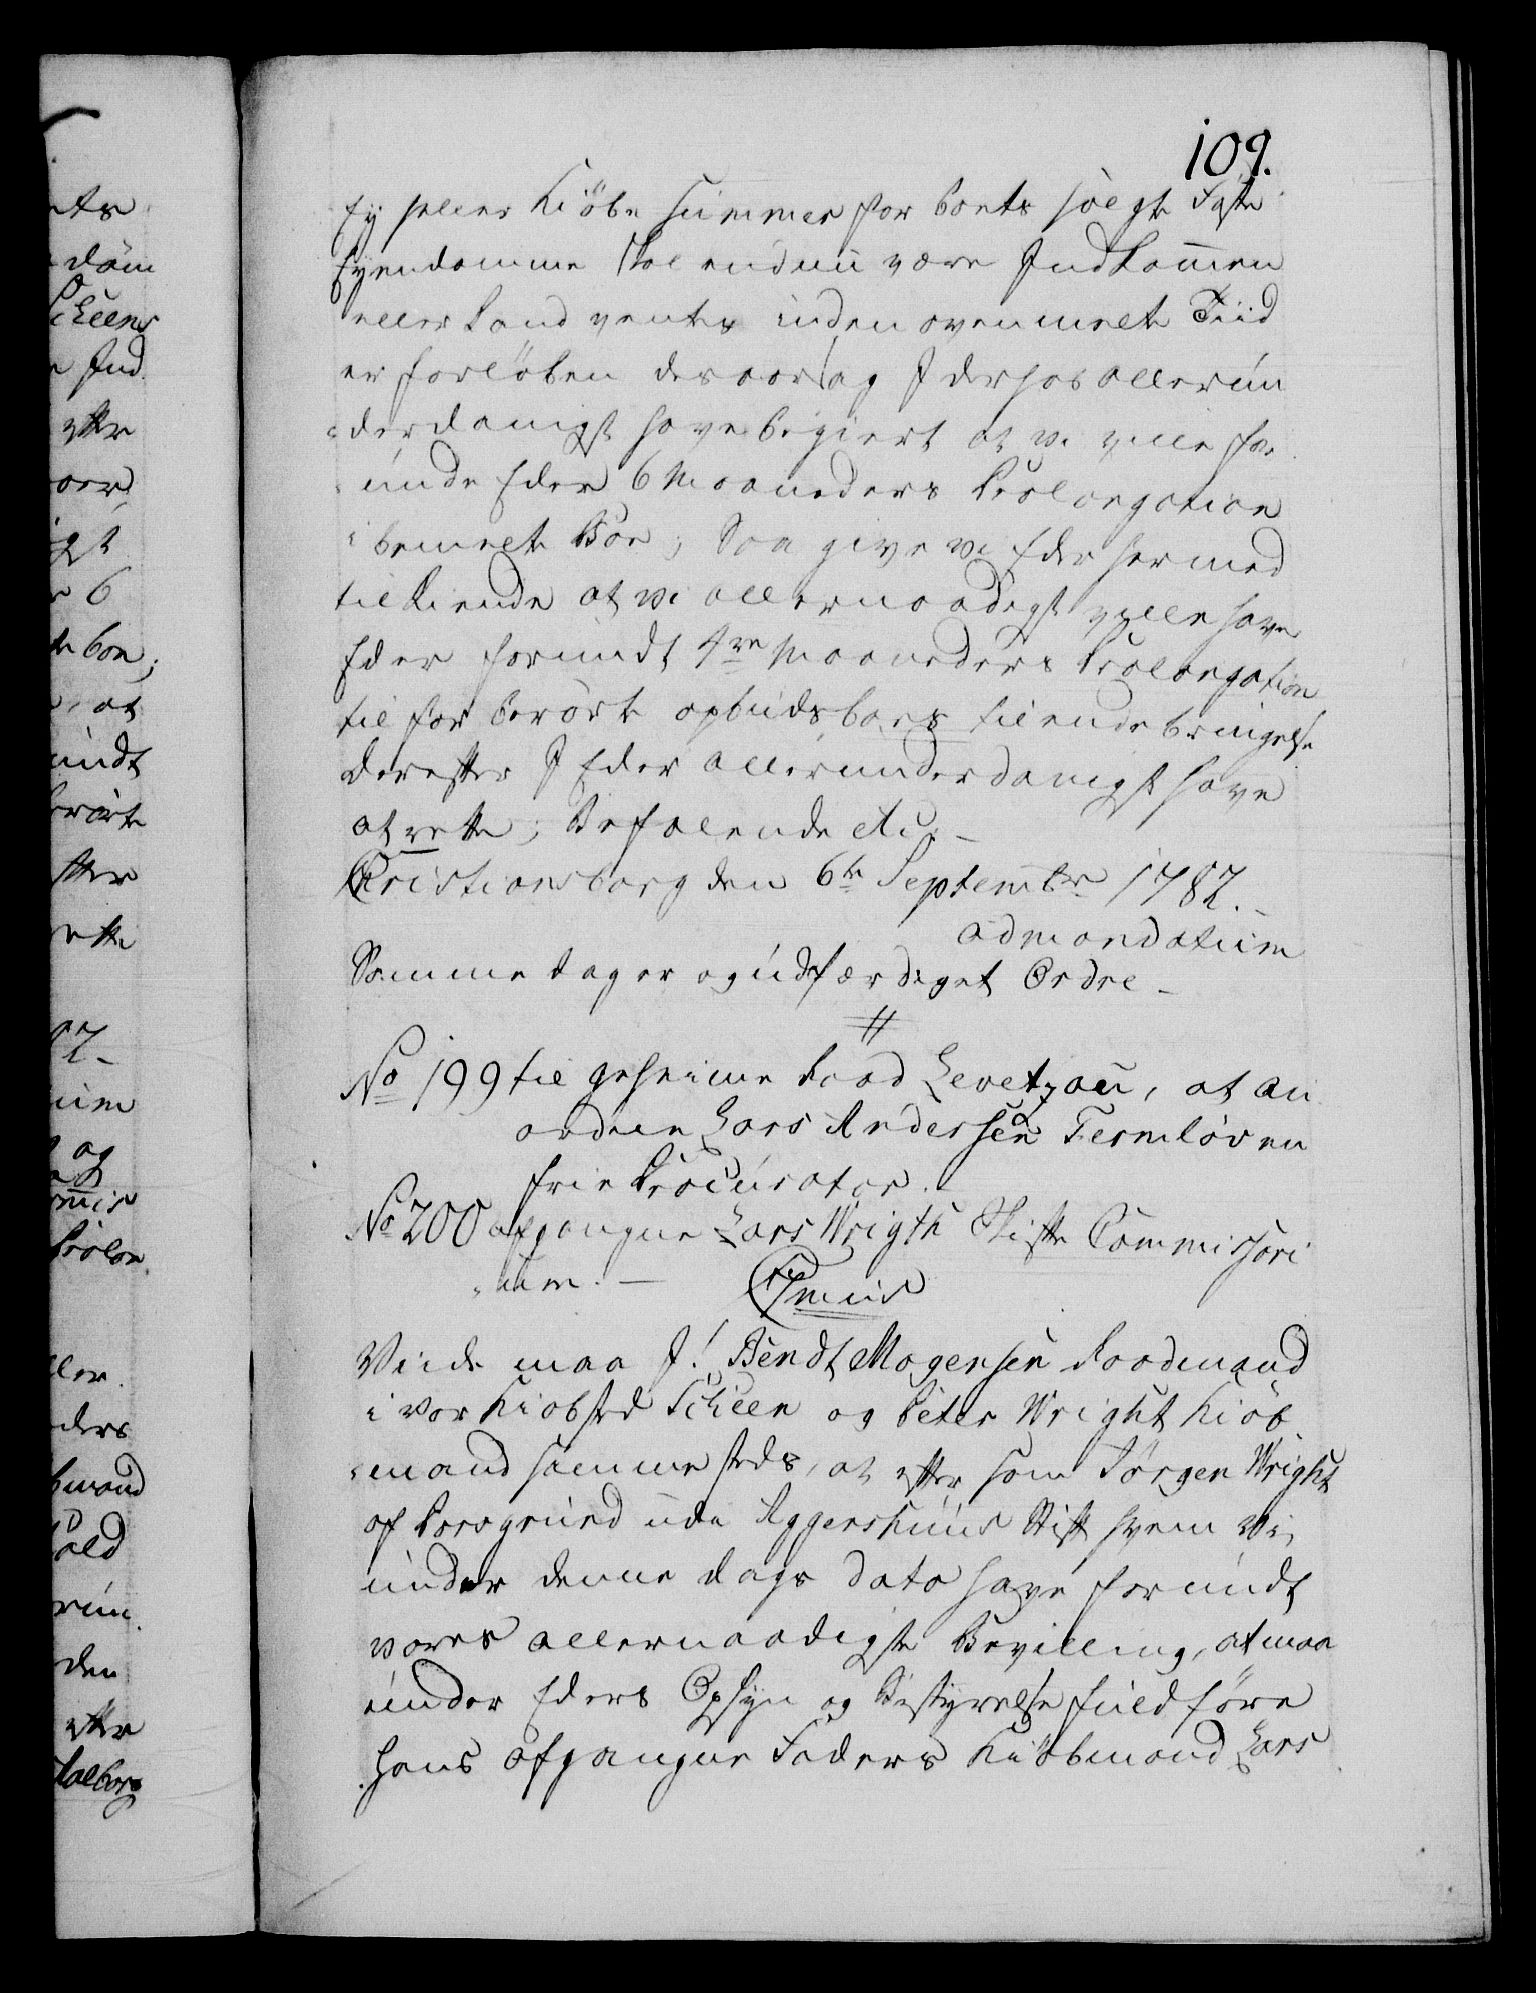 109.
Ey heller Kiöbe Summer for boets solgte Faste
Eyendomme skal endnu være Indkommen
eller kand ventes inden ovenmelte Tiid
er forløben desaarsag I derhos allerun
derdanigst have begiert at vi ville for
unde Eder 6 Maaneders Prolongation
i bemelte Boe; Saa give vi Eder hermed
tilkiende at vi allernaadigst ville have
Eder forundt 4re Maaneders Prolongation
til forberørte opbudsboes tilendebringelse
derefter I Eder allerunderdanigst have
at rette; Befalende etc. –
Cristiansborg den 6te Septembr 1782. –
admandatum
Samme dag er og udfærdiget Ordre –
//
No 199 til geheime Raad Levetzau, at an
ordne Lars Andersen Termløven
frie Procurator. –
No 200 afgangne Lars Wrigth Skifte Commissori
um. –
C7mus
Viide maa I! Bendt Mogensen Raadmand
i vor Kiøbsted Scheen og Peter Wright Kiöb
mand sammesteds, at efter som Jørgen Wright
af Porsgrund udi Aggershuus Stift hvem Vi
under denne dags dato have forundt
vores allernaadigste Bevilling, at maa
under Eders Opsyn og Bestyrelse fuldføre
hans afgangne Faders Kiøbmand Lars